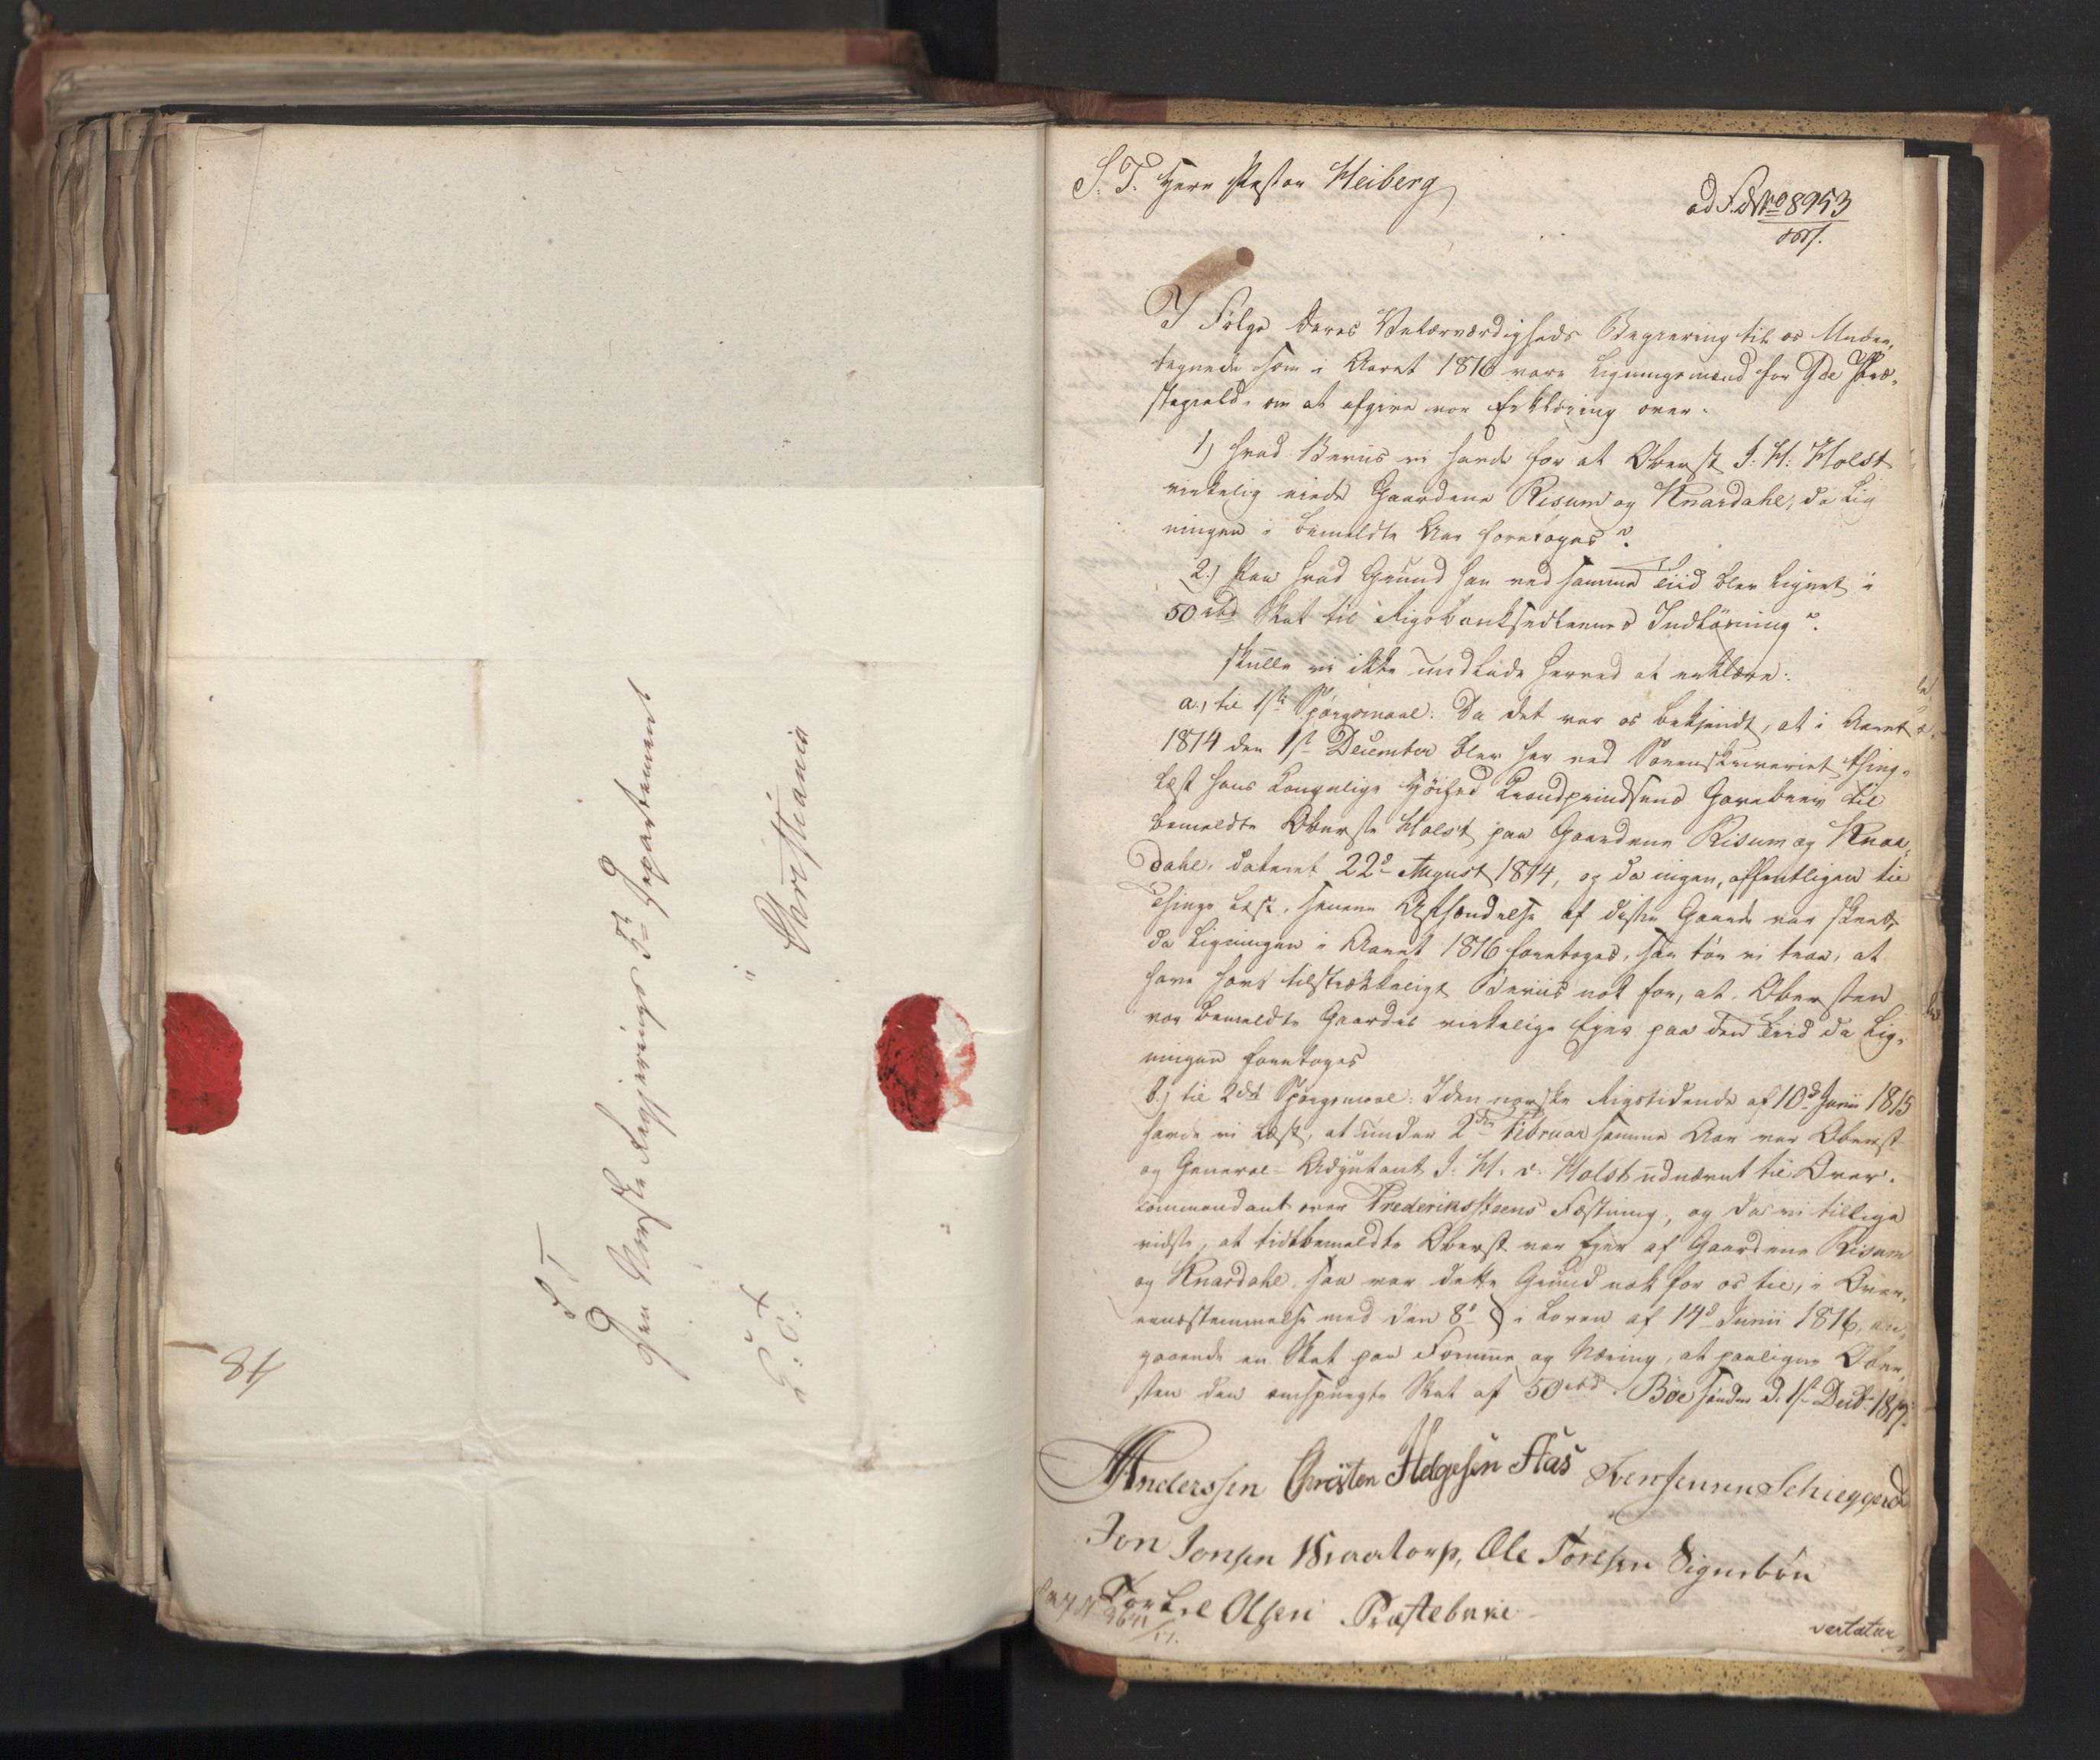 S. T.
Den Norske Regjerings 5te Departement
i
Christiania
48
S. T. Herr Pastor Heiberg
ad F. No 8953
I Følge Deres Velærværdigheds Begiering til os Under-
tegnede som i Aaret 1816 vare Ligningsmænd for Præ-
stegield, om at afgive vor Erklæring over:
1) hvad Beviis vi havde for at Oberst J: H: Holst
virkelig eiede Gaardene Risum og Knardahl, da Lig
ningen i bemeldte Aar foretoges?
2.) Paa hvad Grund han ved samme Tiid blev lignet i
50 rbd Skat til Rigsbanksedlernes Indløsning?
skulle vi ikke undlade herved at erklære:
a., til 1ste Spørgsmaal: Da det var os bekjendt, at i Aaret
1814 den 1ste December blev her ved Sorenskriveriet thing-
læst hans Kongelige Höihed Krondprindsens Gavebrev til
bemeldte Oberste Holst paa Gaardene Risum og Knar-
dahl, dateret 22d August 1814, og da ingen, offentligen til
Thinge læst, senere Afhændelse af disse Gaarde var skeet,
da Ligningen i Aaret 1816 foretoges, saa tör vi troe, at
have havt tilstrækkeligt Beviis nok for, at Obersten
var bemeldte Gaardes virkelige Eier paa den Tiid da Lig-
ningen foretoges
b.) til 2det Spørgsmaal: I den norske Rigstidende af 10d Junii 1815
havde vi læst, at under 2den Februar samme Aar var Oberst
og General-Adjutant J. H. v. Holst udnævnt til Over-
commandant over Frederikssteens Fæstning, og da vi tillige
vidste, at tidtbemeldte Oberst var Eier af Gaardene Risum
og Knardahl, saa var dette Grund nok for os til, i Over-
eensstemmelse med den 8d § i Loven af 14d Junii 1816, an-
gaaende en Skat paa Formue og Næring, at paaligne Ober-
sten den omspurgte Skat af 50 rbd. Böe sønden d. 1ste Decbr 1817.
Anderssen Christen Helgesen Aas Iver Jensen
Jon Jonsen Braatorp, Ole Toresen Signebön
Torkel Olsen Præstebakke
9641
17.
vertatur